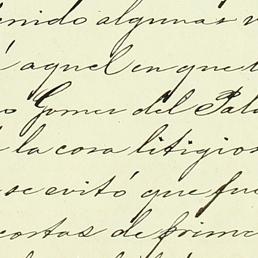 enido algunas v
i aquel en que t
o Gomez del Pala
la cosa litigios
se evitó que fue
costas de prime